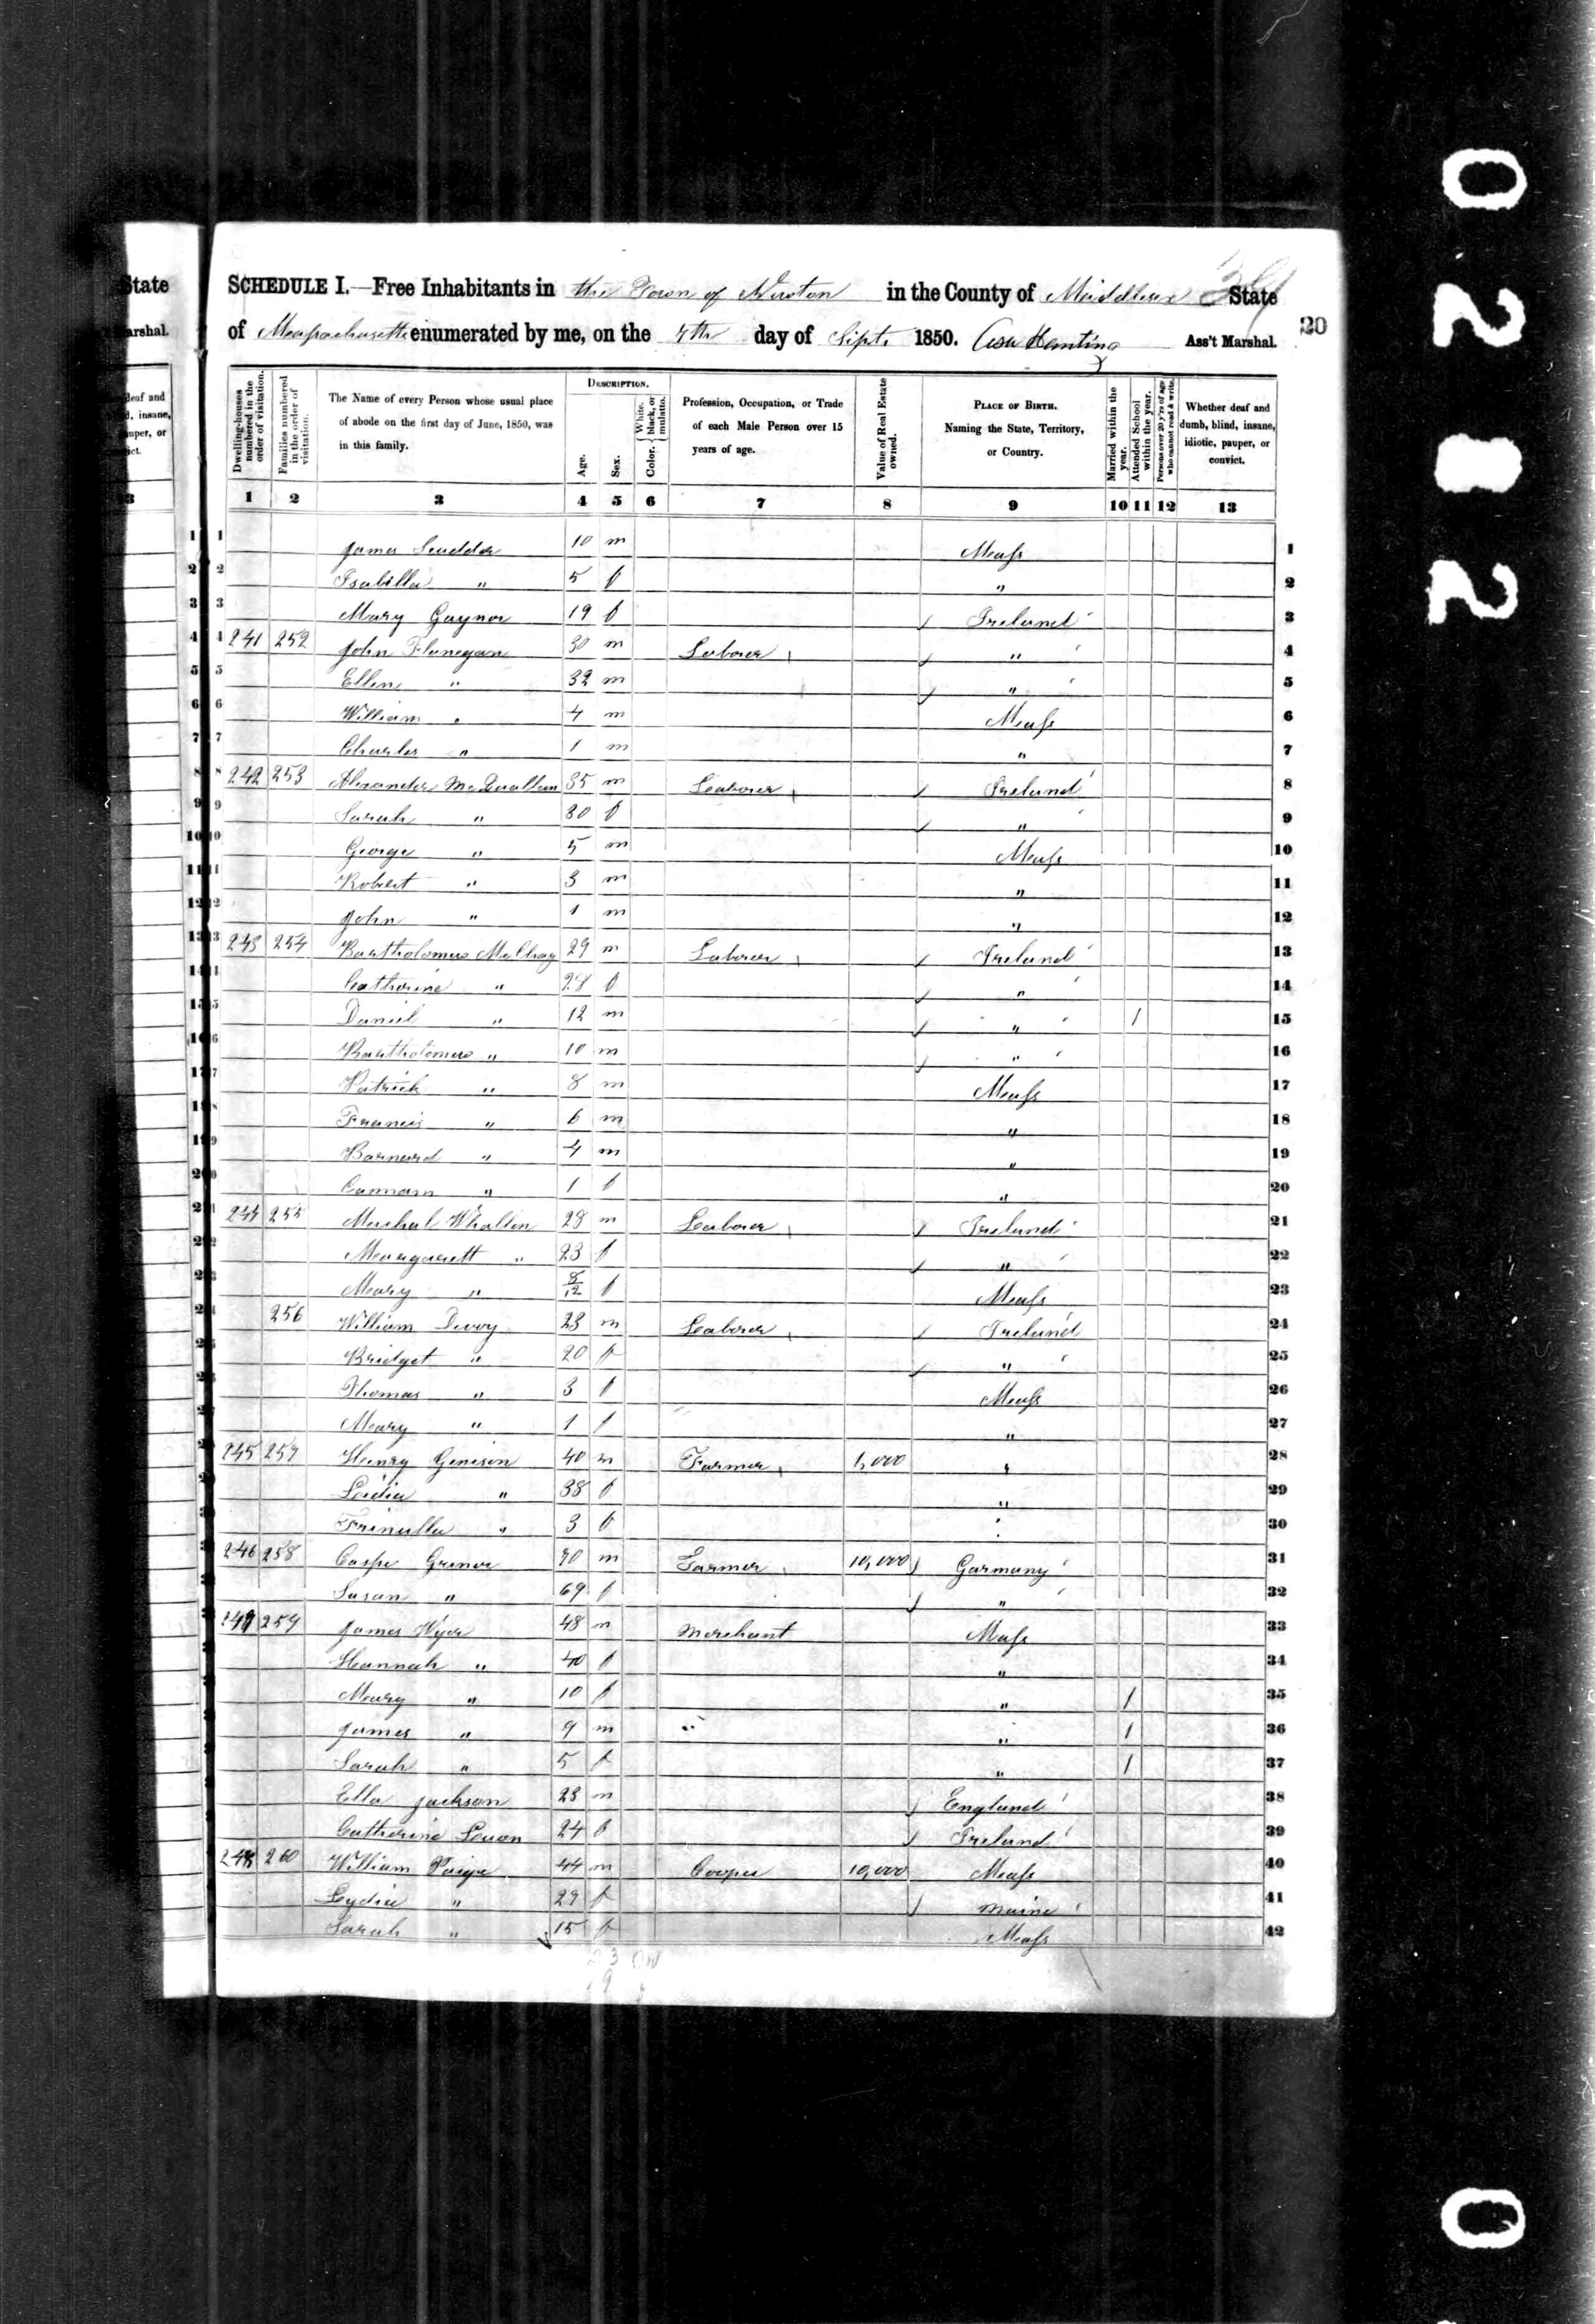 State
SCHEDULE I.—Free Inhabitants in the Town of Newton in the County of Middlesex State
Marshal.
of Massachusetts enumerated by me, on the 7th day of Sept. 1850. Asa Ass't Marshal.
20
Dwelling-houses numbered in the order of visitation.
Families numbered in the order of visitation.
The Name of every Person whose usual place of abode on the first day of June, 1850, was in this family.
DESCRIPTION.
Age.
Sex.
Color. { White, black, or mulatto.
Profession, Occupation, or Trade of each Male Person over 15 years of age.
Value of Real Estate owned.
PLACE OF BIRTH. Naming the State, Territory, or Country.
Married within the year.
Attended School within the year.
Persons over 20 y'rs of age who cannot read & write.
Whether deaf and dumb, blind, insane, idiotic, pauper, or convict.
1 2 3 4 5 6 7 8 9 10 11 12 13
1 James Scudder 10 m Mass 1
2 Isabella " 5 f " 2
3 Mary Gaynor 19 f Ireland 3
4 241 252 John Flanegan 30 m Laborer " 4
5 Ellen " 32 m " 5
6 William " 4 m Mass 6
7 Charles " 1 m " 7
8 242 253 Alexander 35 m Laborer Ireland 8
9 Sarah " 30 f " 9
10 George " 5 m Mass 10
11 Robert " 3 m " 11
12 John " 1 m " 12
13 243 254 Bartholomew 29 m Laborer Ireland 13
14 Catherine " 28 f " 14
15 Daniel " 12 m " 1 15
16 Bartholomew " 10 m " 16
17 Patrick " 8 m Mass 17
18 Francis " 6 m " 18
19 Barnard " 4 m " 19
" 1 f " 20
244 255 Michal Whallen 28 m Laborer Ireland 21
Margarett " 23 f " 22
Mary " 8/12 f Mass 23
256 William Devoy 23 m Laborer Ireland 24
Bridget " 20 f " 25
Thomas " 3 f Mass 26
Mary " 1 f " 27
245 257 Henry Genison 40 m Farmer 1,000 " 28
Lidia " 38 f " 29
" 3 f " 30
246 258 Casper Griner 70 m Farmer 10,000 Garmany 31
Susan " 69 f " 32
259 James Wyer 48 m Merchant Mass 33
Hannah " 40 f " 34
Mary " 10 f " 1 35
James " 9 m " 1 36
Sarah " 5 f " 1 37
Ella Jackson 23 m England 38
Catherine 24 f Ireland 39
248 260 William Paige 44 m Cooper 10,000 Mass 40
Lydia " 29 f Maine 41
Sarah " 15 f Mass 42
0212
0